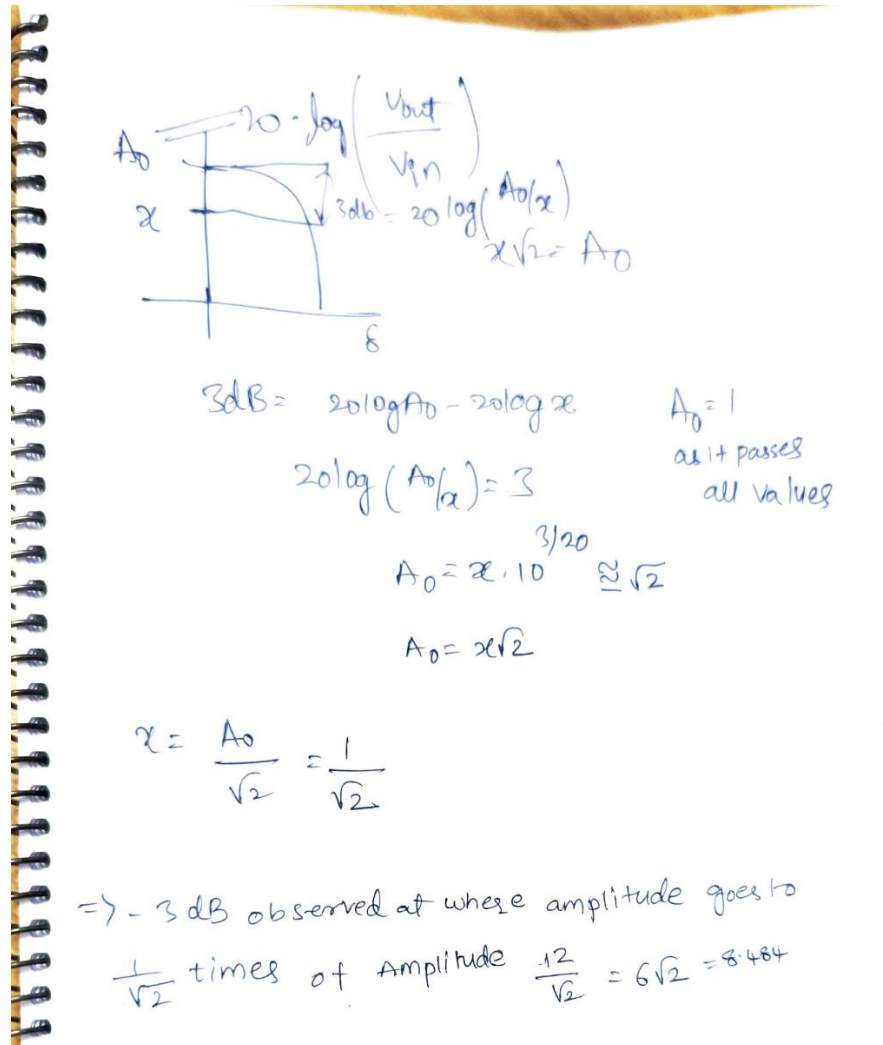 20 · log(Vout/Vin)
A₀
x
3db = 20 log(A₀/x)
x√2 = A₀
f
3dB = 20log A₀ - 20log x
A₀ = 1
as it passes
all values
20log (A₀/x) = 3
A₀ = x. 10^(3/20) ≅ √2
A₀ = x√2
x = A₀/√2 = 1/√2
=> -3 dB observed at where amplitude goes to
1/√2 times of Amplitude 12/√2 = 6√2 = 8.484